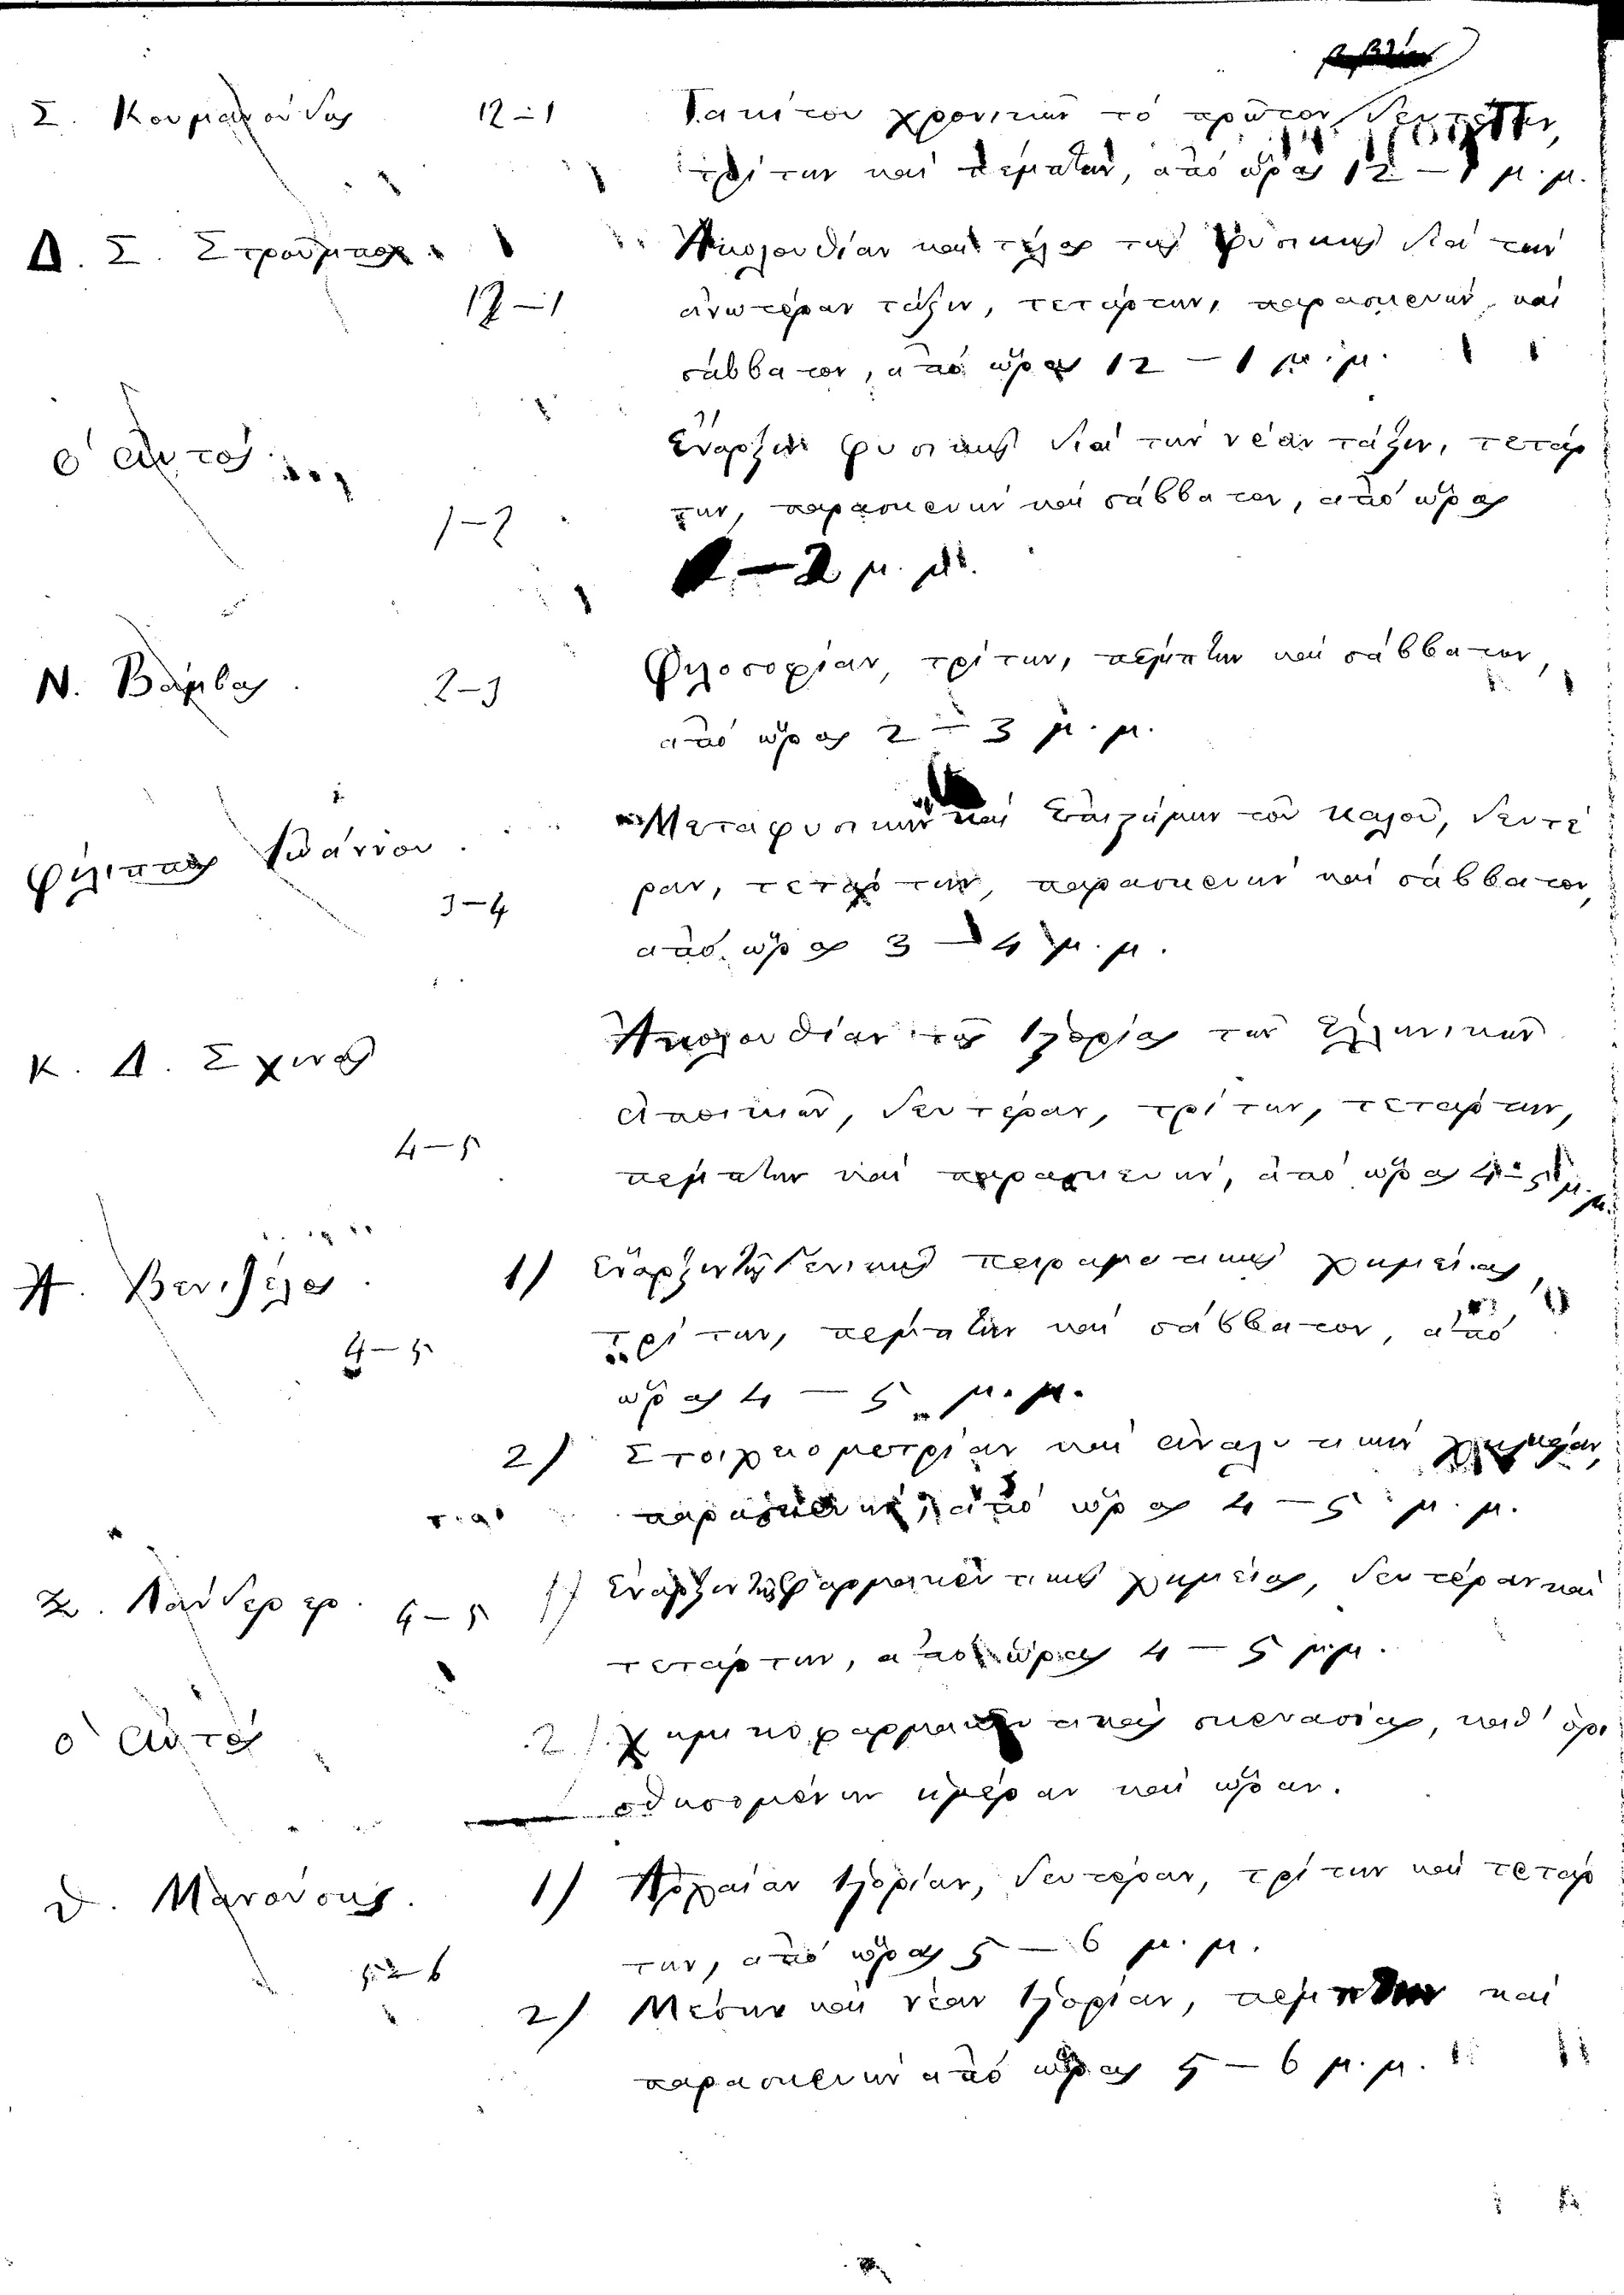 Σ. Κουμανούδης 12–1 Τακίτου χρονικῶν τὸ πρῶτον, δευτέραν,
τρίτην καὶ πέμπτην, ἀπὸ ὥρας 12 – 1 μ. μ.
Δ. Σ. Στρούμπος. Ἀκολουθίαν καὶ τέλος τῆς φυσικῆς διὰ τὴν
12–1 ἀνωτέραν τάξιν, τετάρτην, παρασκευὴν καὶ
σάββατον, ἀπὸ ὥρας 12 – 1 μ. μ.
ὁ αὐτός. Ἔναρξιν φυσικῆς διὰ τὴν νέαν τάξιν, τετάρ
1–2 την, παρασκευὴν καὶ σάββατον, ἀπὸ ὥρας
1 – 2 μ. μ.
Ν. Βάμβας. 2–3 Φιλοσοφίαν, τρίτην, πέμπτην καὶ σάββατον,
ἀπὸ ὥρας 2 – 3 μ. μ.
Φίλιππος Ἰωάννου. Μεταφυσικὴν καὶ Ἐπιστήμην τοῦ καλοῦ, δευτέ
3–4 ραν, τετάρτην, παρασκευὴν καὶ σάββατον,
ἀπὸ ὥρας 3 – 4 μ. μ.
Κ. Δ. Σχινᾶς Ἀκολουθίαν τῆς Ἱστορίας τῶν Ἑλληνικῶν
ἀποικιῶν, δευτέραν, τρίτην, τετάρτην,
4–5 πέμπτην καὶ παρασκευὴν, ἀπὸ ὥρας 4–5 μ. μ.
Α. Βενιζέλος. 1) Ἔναρξιν τῆς Γενικῆς πειραματικῆς χημείας,
4–5 τρίτην, πέμπτην καὶ σάββατον, ἀπὸ
ὥρας 4 – 5 μ. μ.
2) Στοιχειομετρίαν καὶ ἀναλυτικὴν χημείαν,
παρασκευὴν, ἀπὸ ὥρας 4 – 5 μ. μ.
Ξ. Λάνδερερ. 4–5 1) Ἔναρξιν τῆς φαρμακευτικῆς χημείας, δευτέραν καὶ
τετάρτην, ἀπὸ ὥρας 4 – 5 μ. μ.
ὁ αὐτός 2) χημικοφαρμακευτικὰς σκευασίας, καθ' ὁρι
σθησομένην ἡμέραν καὶ ὥραν.
Θ. Μανούσης. 1) Ἀρχαίαν Ἱστορίαν, δευτέραν, τρίτην καὶ τετάρ
5–6 την, ἀπὸ ὥρας 5 – 6 μ. μ.
2) Μέσην καὶ νέαν Ἱστορίαν, πέμπτην καὶ
παρασκευὴν ἀπὸ ὥρας 5 – 6 μ. μ.